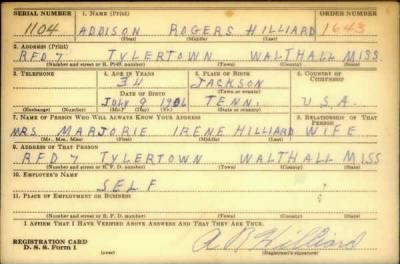 SERIAL NUMBER 1. NAME (Print) ORDER NUMBER
1104 ADDISON ROGERS HILLIARD 1643
(First) (Middle) (Last)
2. ADDRESS (Print)
R.F.D 7 TYLERTOWN WALTHALL MISS.
(Number and street or R. F. D. number) (Town) (County) (State)
3. TELEPHONE 4. AGE IN YEARS 5. PLACE OF BIRTH 6. COUNTRY OF CITIZENSHIP
34 JACKSON
DATE OF BIRTH (Town or county)
JULY 9 1906 TENN. U.S.A.
(Exchange) (Number) (Mo.) (Day) (Yr.) (State or country)
7. NAME OF PERSON WHO WILL ALWAYS KNOW YOUR ADDRESS 8. RELATIONSHIP OF THAT PERSON
MRS. MARJORIE IRENE HILLIARD WIFE
(Mr., Mrs., Miss) (First) (Middle) (Last)
9. ADDRESS OF THAT PERSON
R.F.D 7 TYLERTOWN WALTHALL MISS
(Number and street or R. F. D. number) (Town) (County) (State)
10. EMPLOYER'S NAME
SELF
11. PLACE OF EMPLOYMENT OR BUSINESS
(Number and street or R. F. D. number) (Town) (County) (State)
I AFFIRM THAT I HAVE VERIFIED ABOVE ANSWERS AND THAT THEY ARE TRUE.
REGISTRATION CARD
D. S. S. Form 1 (over) A R Hilliard
(Registrant's signature)